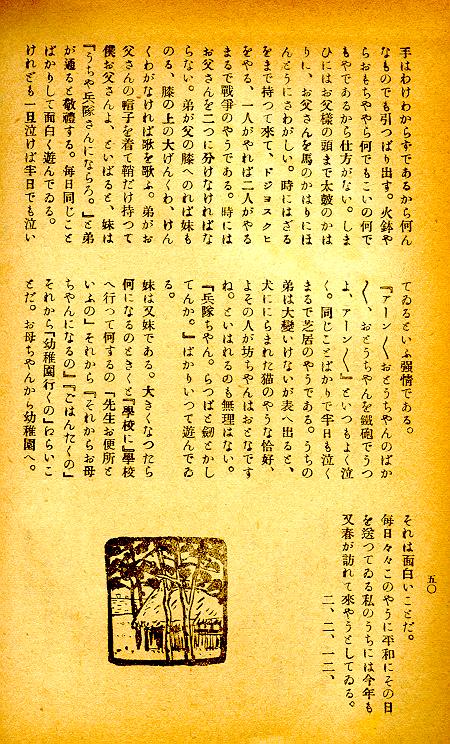 手はわけわからずであるから何ん
なものでも引つぱり出す。火鉢や
らおもちやら何でもこいの何で
もやであるから仕方がない。しま
ひにはお父様の頭まで太鼓のかは
りに、お父さんを馬のかはりにほ
んとうにさわがしい。時にはざる
をまで持つて來て、ドジヨスクヒ
をやる、一人がやれば二人がやる
まるで戰爭のやうである。時には
お父さんを二つに分けなければな
らない。弟が父の膝へのれば妹も
のる、膝の上の大げんくわ、けん
くわがなければ歌を歌ふ。弟がお
父さんの帽子を着て鞄だけ持つて
僕お父さんよ、といばると、妹は
『うちや兵隊さんにならろ。』と弟
が通ると敬禮する。每日同じこと
ばかりして面白く遊んでゐる。
けれども一旦泣けば半日でも泣い
てゐるといふ强情である。
『アーン〳〵おとうちやんのばか
〳〵、おとうちやんを鐵砲でうつ
よ、アーン〳〵』といつもよく泣
く。同じことばかりで半日も泣く
まるで芝居のやうである。うちの
弟は大變いけないが表へ出ると、
犬ににらまれた猫のやうな恰好、
よその人が坊ちやんはおとなです
ね。といはれるのも無理はない。
『兵隊ちやん。らつぱと劍とかし
てんか。』ばかりいつて遊んでゐ
る。
妹は又妹である。大きくなつたら
何になるのときくと『學校に』學校
へ行つて何するの『先生お便所と
いふの』それから『それからお母
ちやんになるの』『ごはんたくの』
それから『幼稚園行くの』くらいこ
とだ。お母ちやんから幼稚園へ。
それは面白いことだ。
每日々々このやうに平和にその日
を送つてゐる私のうちには今年も
又春が訪れて來やうとしてゐる。
二、二、一二、
五〇